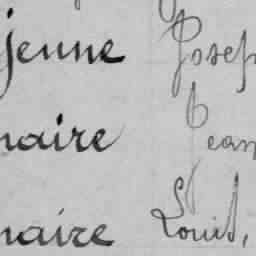 jenne Josep
naire Jean
naire Louis,